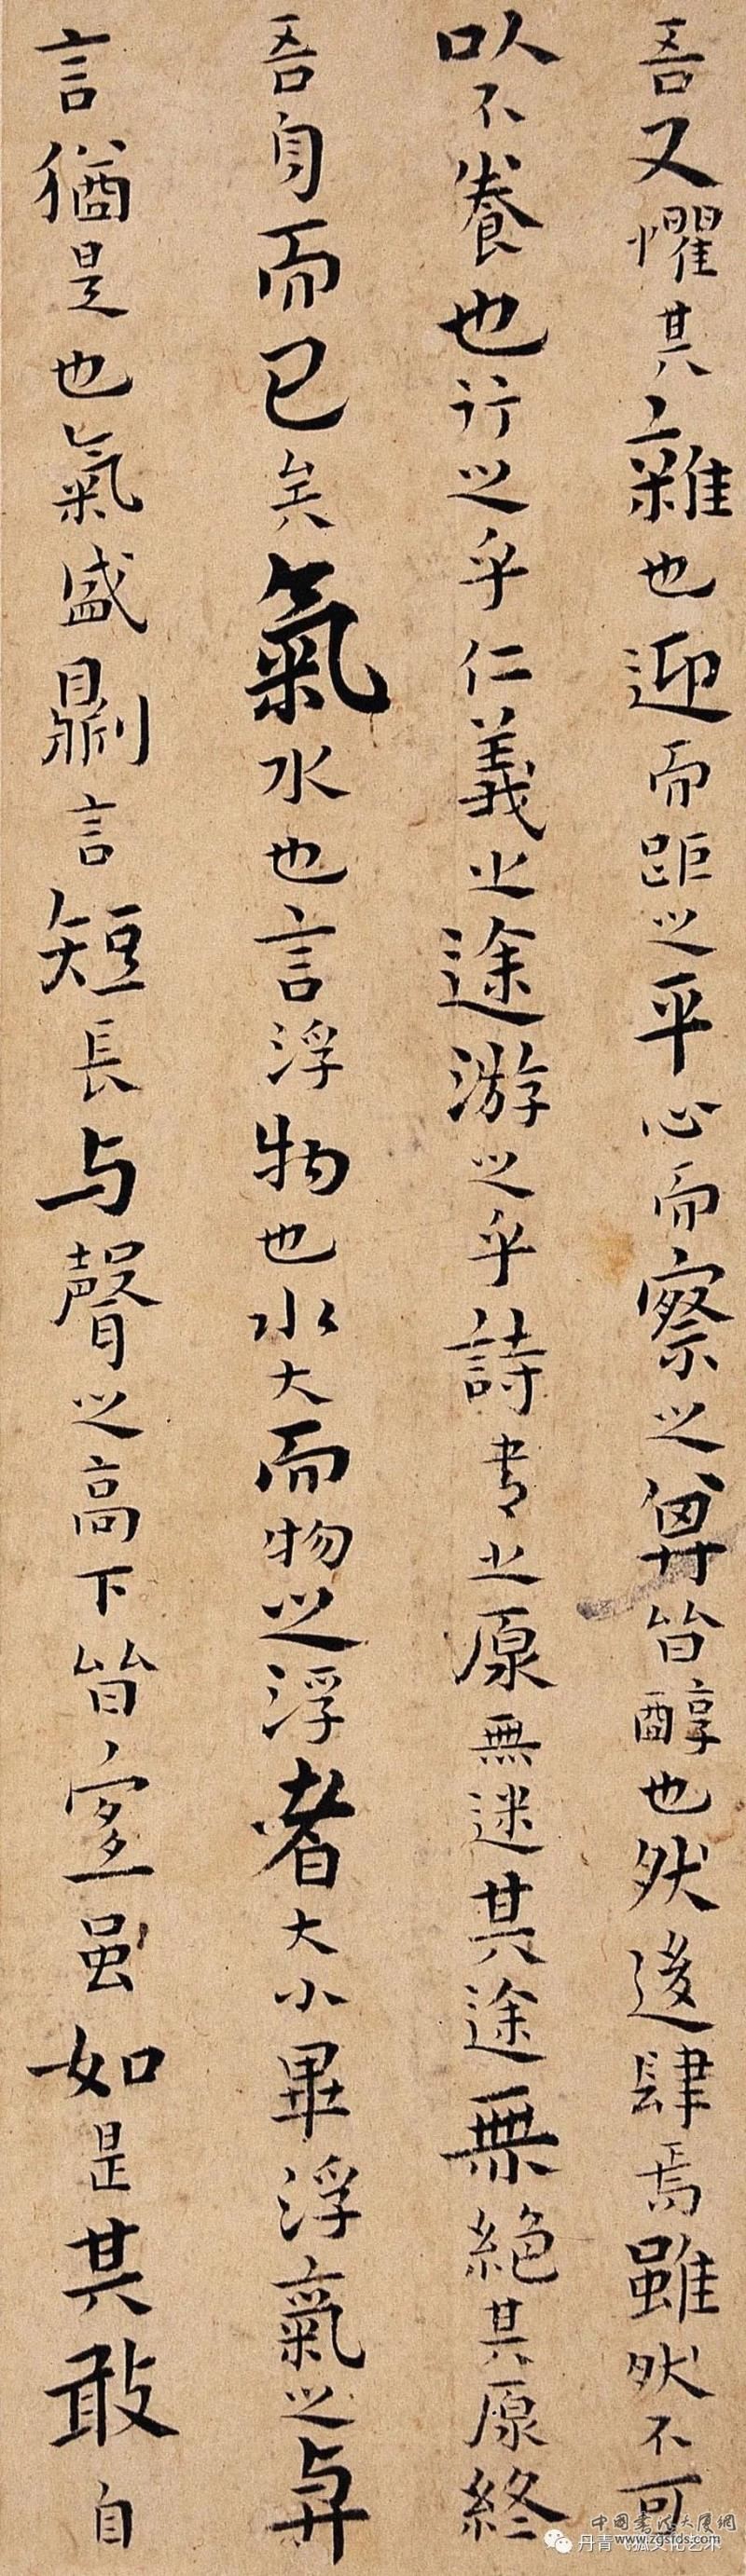 吾又懼其雜也迎而距之平心而察之其皆醇也然後肆焉雖然不可
以不養也行之乎仁義之途游之乎詩書之原無迷其途無絕其原終
吾身而已矣氣水也言浮物也水大而物之浮者大小畢浮氣之與
言猶是也氣盛則言短長与聲之高下皆宜虽如是其敢自
中國書法大廈網
www.zgsfds.com
丹青 文化艺术